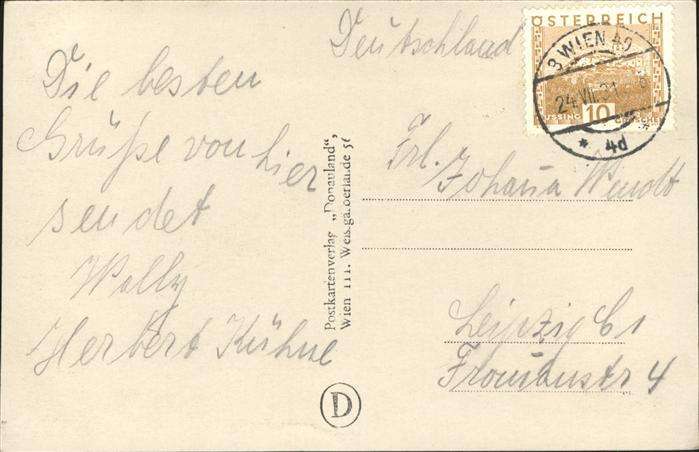 Die besten
Grüße von hier
sendet
Wally
Herbert Kühne
Postkartenverlag „Donauland",
Wien III. Weisgärberlände 50
D
Deutschland
ÖSTERREICH
10
GÜSSING
3 WIEN 40
24.VII.31
* 4d *
Frl. Johana Wendt
Leipzig C1
4